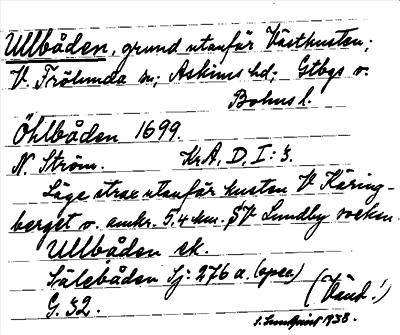 Ullbåden, grund utanför Västkusten;
V. Frölunda sn; Askims hd; Gtbgs o.
Bohusl.
Öhlbåden 1699.
N. Ström. KrA, D, I: 3.
Läge strax utanför kusten V Käring-
berget o. omkr. 5,4 km. SV Lundby socken.
Ullbåden ek.
Sälebåden Sj: 276 a. (spec)
G. 32. (Vänd!)
1938.